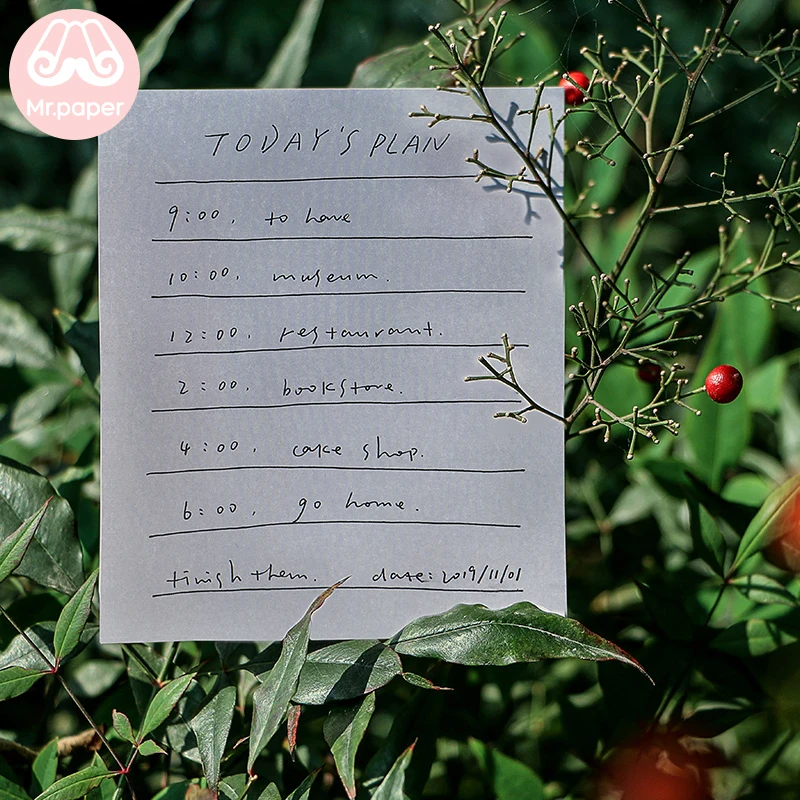 Mr.paper
TODAY'S PLAN
9:00. to have
10:00. museum.
12:00. restaurant.
2:00. bookstore.
4:00. cake shop.
6:00. go home.
finish them. date: 2019/11/01